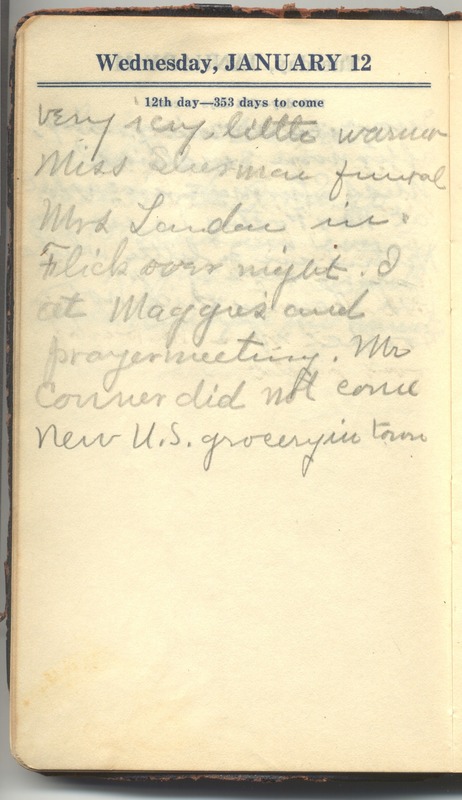 Wednesday, JANUARY 12
12th day—353 days to come
very icy, little warmer
Miss funeral
Mrs Landon in.
Flick over night. I
at Maggie's and
prayermeeting. Mr
Conner did not come
New U.S. grocery in town